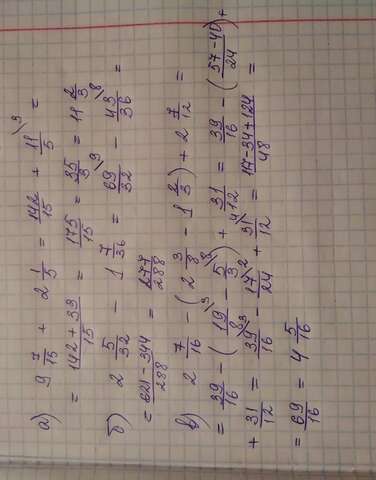 а) 9 7/15 + 2 1/5 = 142/15 + 11/5 \3 =
= 142+33/15 = 175/15 = 35/3 = 11 2/3
б) 2 5/32 - 1 7/36 = 69/32 \9 - 43/36 \8 =
= 621-344/288 = 277/288
в) 2 7/16 - (2 3/8 - 1 2/3) + 2 7/12 =
= 39/16 - (19/8 \3 - 5/3 \8) + 31/12 = 39/16 - (57-40/24) +
+ 31/12 = 39/16 \3 - 17/24 \2 + 31/12 \4 = 117-34+124/48 =
= 69/16 = 4 5/16